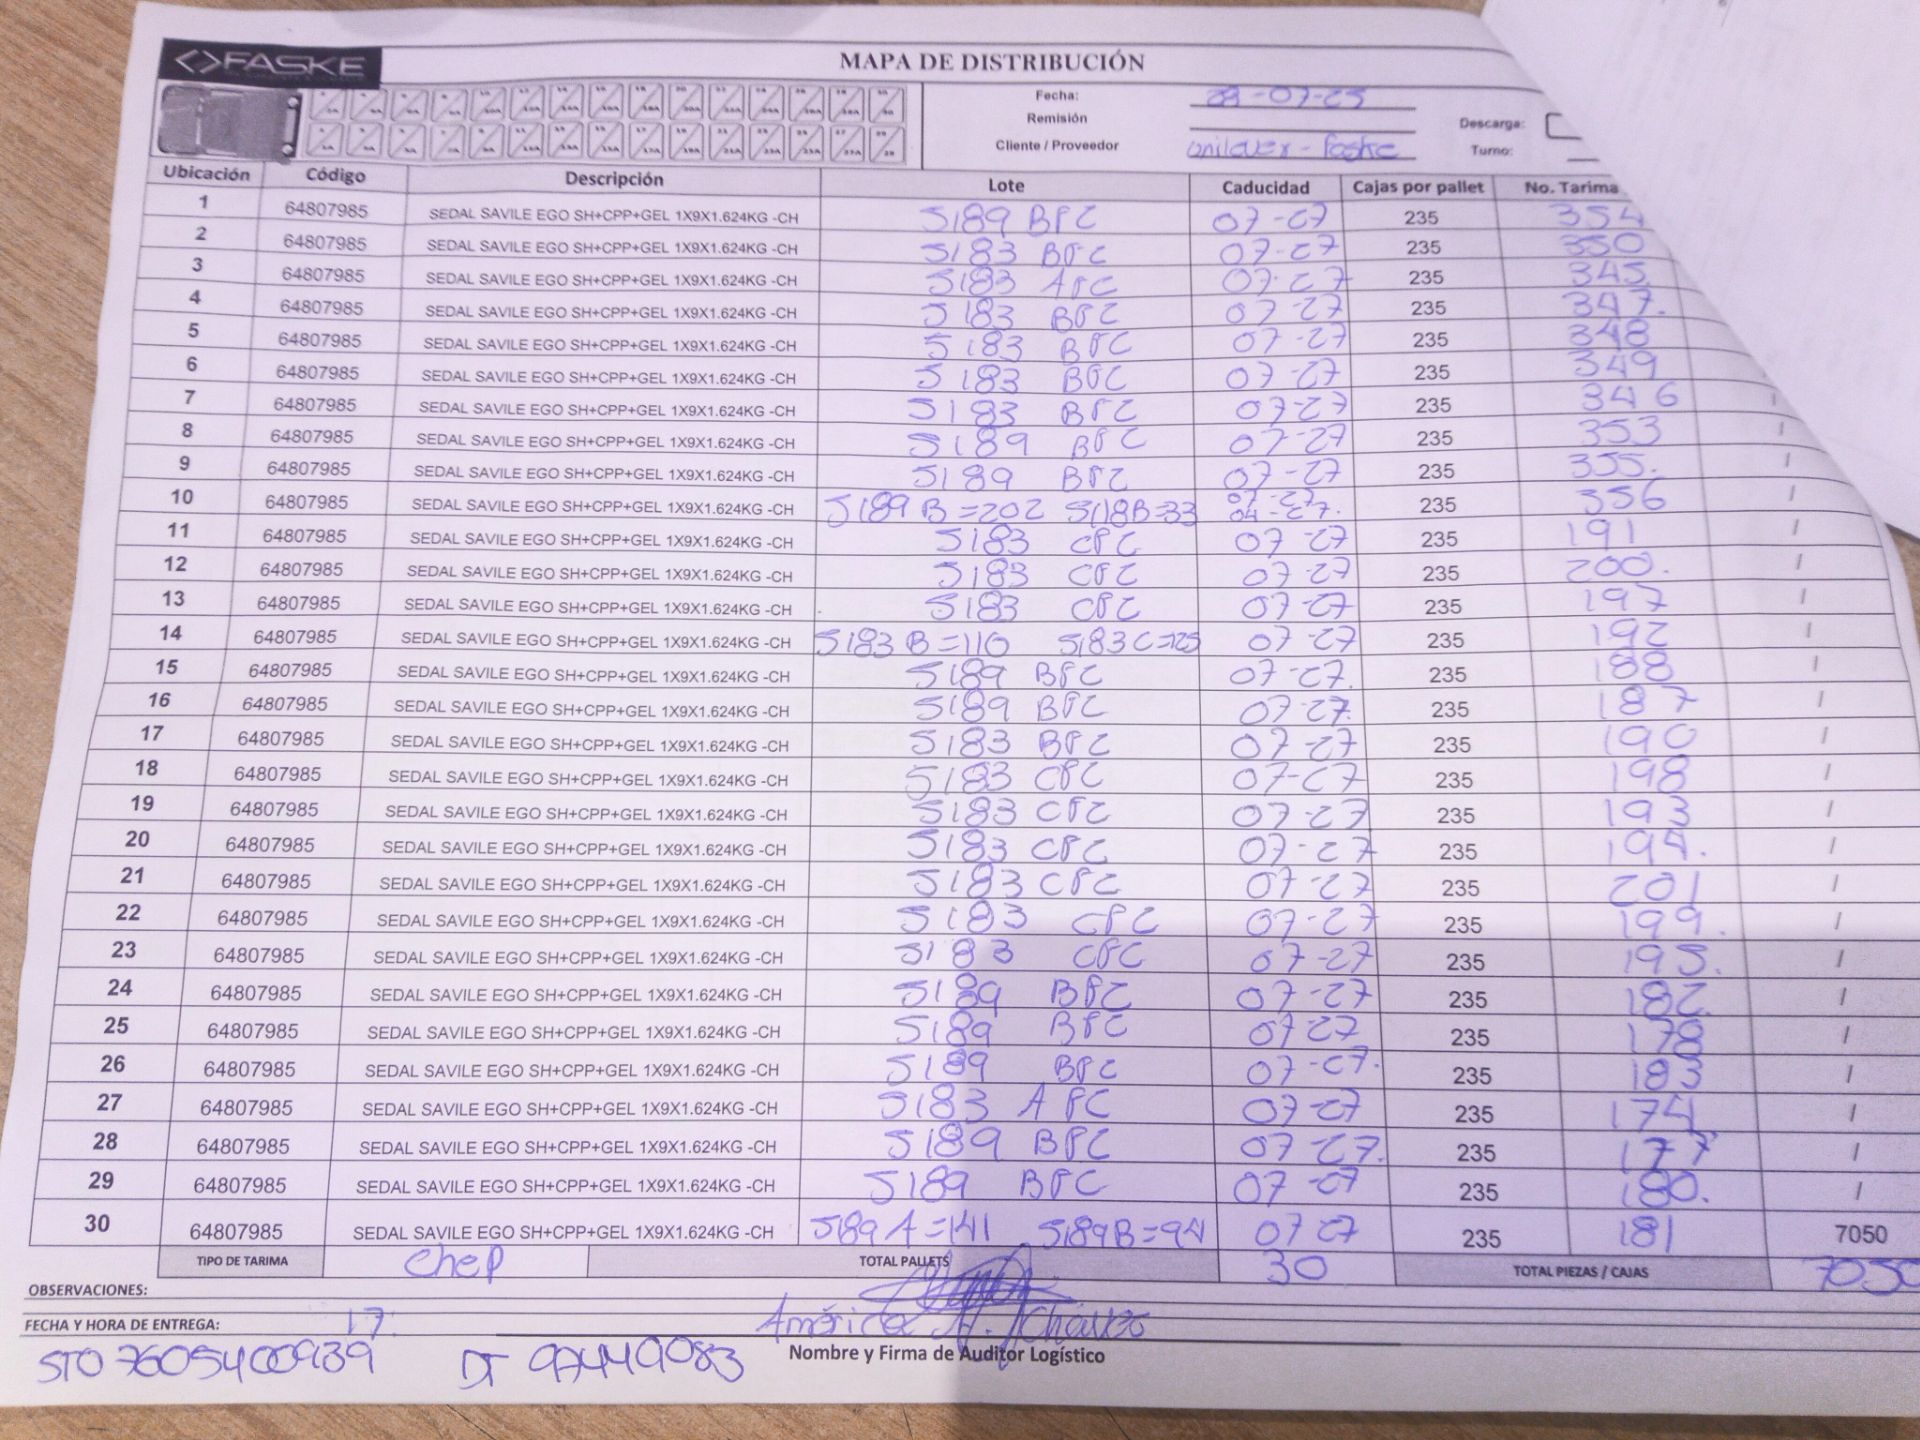 <>FASKE
MAPA DE DISTRIBUCIÓN
Fecha: -07-25
Remisión
Descarga:
Cliente / Proveedor Unilever - Faske
Turno:
Ubicación Código Descripción Lote Caducidad Cajas por pallet No. Tarima
1 64807985 SEDAL SAVILE EGO SH+CPP+GEL 1X9X1.624KG -CH 5189 BPC 07-27 235 354
2 64807985 SEDAL SAVILE EGO SH+CPP+GEL 1X9X1.624KG -CH 5183 BPC 07-27 235 350
3 64807985 SEDAL SAVILE EGO SH+CPP+GEL 1X9X1.624KG -CH 5183 APC 07-27 235 345.
4 64807985 SEDAL SAVILE EGO SH+CPP+GEL 1X9X1.624KG -CH 5183 BPC 07-27 235 347.
5 64807985 SEDAL SAVILE EGO SH+CPP+GEL 1X9X1.624KG -CH 5183 BPC 07-27 235 348
6 64807985 SEDAL SAVILE EGO SH+CPP+GEL 1X9X1.624KG -CH 5183 BPC 07-27 235 349
7 64807985 SEDAL SAVILE EGO SH+CPP+GEL 1X9X1.624KG -CH 5183 BPC 07-27 235 346 /
8 64807985 SEDAL SAVILE EGO SH+CPP+GEL 1X9X1.624KG -CH 5189 BPC 07-27 235 353 /
9 64807985 SEDAL SAVILE EGO SH+CPP+GEL 1X9X1.624KG -CH 5189 BPC 07-27 235 355. /
10 64807985 SEDAL SAVILE EGO SH+CPP+GEL 1X9X1.624KG -CH 5189 B=202 5118B=33 07-27 04-27. 235 356 /
11 64807985 SEDAL SAVILE EGO SH+CPP+GEL 1X9X1.624KG -CH 5183 CPC 07-27 235 191 /
12 64807985 SEDAL SAVILE EGO SH+CPP+GEL 1X9X1.624KG -CH 5183 CPC 07-27 235 200. /
13 64807985 SEDAL SAVILE EGO SH+CPP+GEL 1X9X1.624KG -CH 5183 CPC 07-27 235 197 /
14 64807985 SEDAL SAVILE EGO SH+CPP+GEL 1X9X1.624KG -CH 5183 B=110 5183 C=125 07-27 235 192 /
15 64807985 SEDAL SAVILE EGO SH+CPP+GEL 1X9X1.624KG -CH 5189 BPC 07-27. 235 188 /
16 64807985 SEDAL SAVILE EGO SH+CPP+GEL 1X9X1.624KG -CH 5189 BPC 07-27. 235 187 /
17 64807985 SEDAL SAVILE EGO SH+CPP+GEL 1X9X1.624KG -CH 5183 BPC 07-27 235 190 /
18 64807985 SEDAL SAVILE EGO SH+CPP+GEL 1X9X1.624KG -CH 5183 CPC 07-27 235 198 /
19 64807985 SEDAL SAVILE EGO SH+CPP+GEL 1X9X1.624KG -CH 5183 CPC 07-27 235 193 /
20 64807985 SEDAL SAVILE EGO SH+CPP+GEL 1X9X1.624KG -CH 5183 CPC 07-27 235 194. /
21 64807985 SEDAL SAVILE EGO SH+CPP+GEL 1X9X1.624KG -CH 5183 CPC 07-27 235 201 /
22 64807985 SEDAL SAVILE EGO SH+CPP+GEL 1X9X1.624KG -CH 5183 CPC 07-27 235 199. /
23 64807985 SEDAL SAVILE EGO SH+CPP+GEL 1X9X1.624KG -CH 5183 CPC 07-27 235 195. /
24 64807985 SEDAL SAVILE EGO SH+CPP+GEL 1X9X1.624KG -CH 5189 BPC 07-27 235 182. /
25 64807985 SEDAL SAVILE EGO SH+CPP+GEL 1X9X1.624KG -CH 5189 BPC 07 27 235 178 /
26 64807985 SEDAL SAVILE EGO SH+CPP+GEL 1X9X1.624KG -CH 5189 BPC 07-27. 235 183 /
27 64807985 SEDAL SAVILE EGO SH+CPP+GEL 1X9X1.624KG -CH 5183 APC 07-27 235 174 /
28 64807985 SEDAL SAVILE EGO SH+CPP+GEL 1X9X1.624KG -CH 5189 BPC 07-27. 235 177 /
29 64807985 SEDAL SAVILE EGO SH+CPP+GEL 1X9X1.624KG -CH 5189 BPC 07-27 235 180. /
30 64807985 SEDAL SAVILE EGO SH+CPP+GEL 1X9X1.624KG -CH 5189 A=141 5189B=94 07 27 235 181 7050
TIPO DE TARIMA chep TOTAL PALLETS 30 TOTAL PIEZAS / CAJAS 7050
OBSERVACIONES:
FECHA Y HORA DE ENTREGA: 17: América A. Chávez
STO 7605400939 DT 97449083 Nombre y Firma de Auditor Logístico